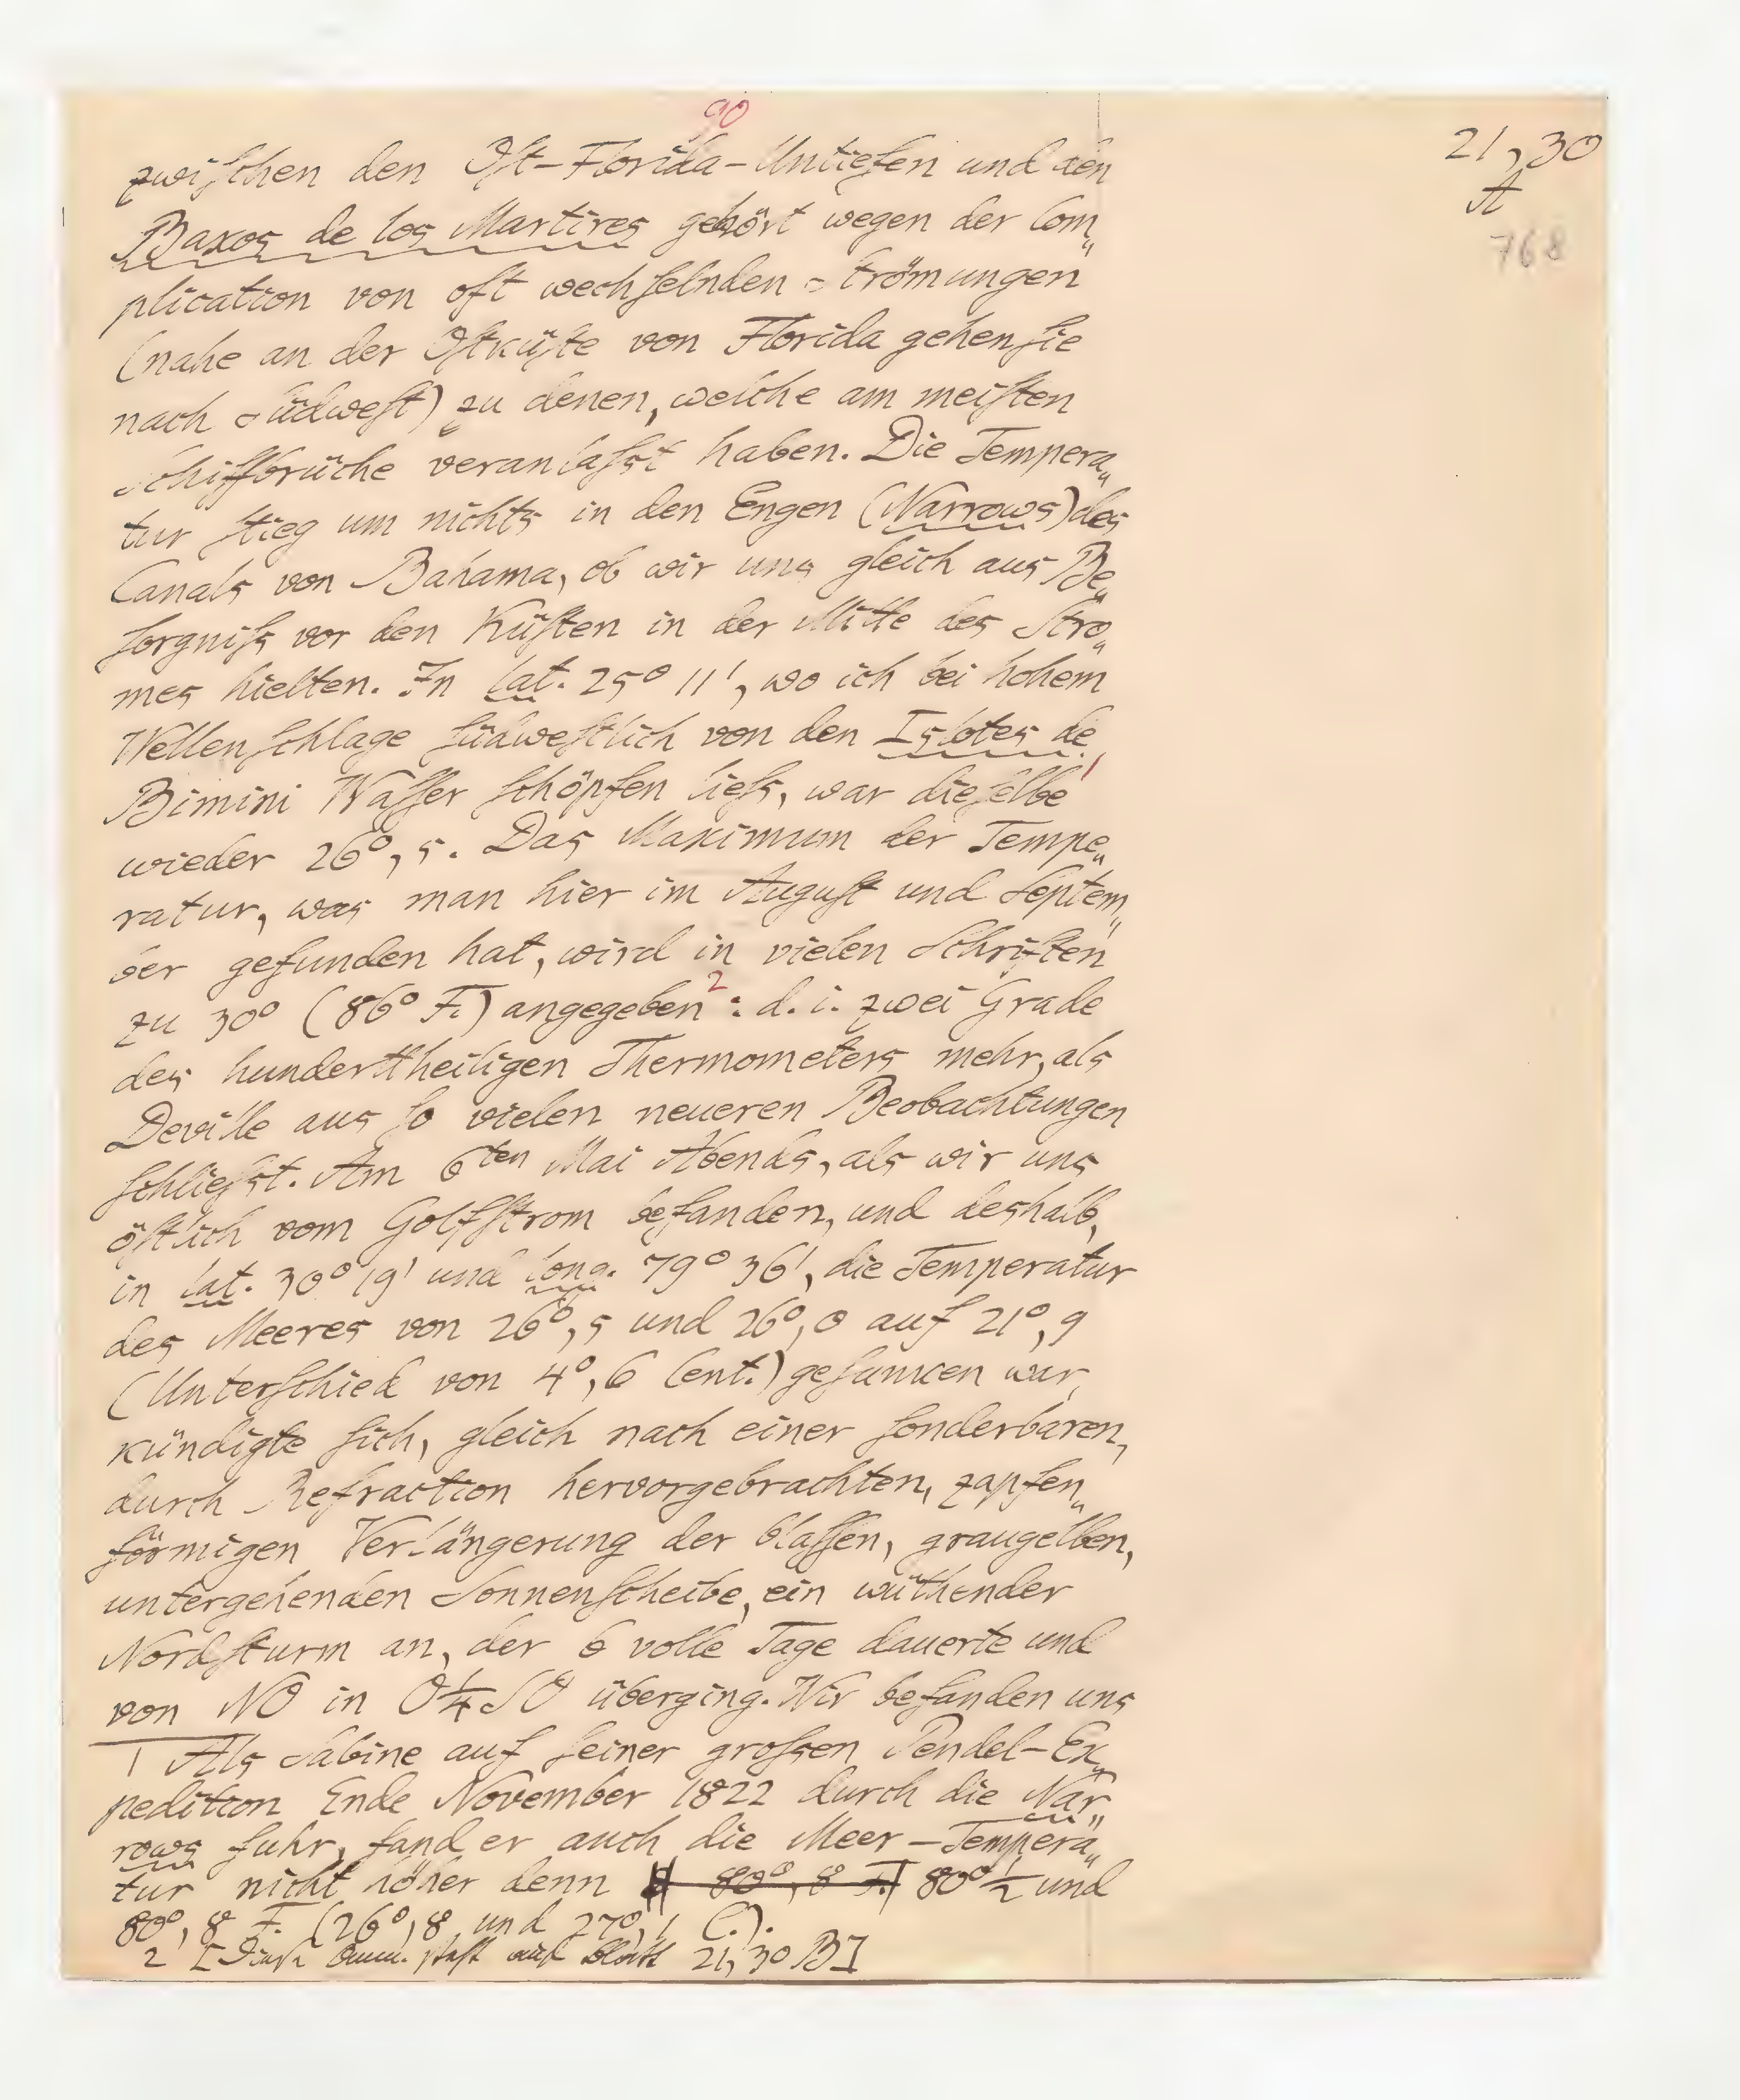 90
21,30
A
768
zwiſchen den Oſt-Florida-Untiefen und den
Baxos de los Martires gehört wegen der Com„
plication von oft wechſelnden Strömungen
(nahe an der Oſtküſte von Florida gehen ſie
nach Südweſt) zu denen, welche am meiſten
Schiffbrüche veranlaſst haben. Die Tempera„
tur ſtieg um nichts in den Engen (Narrows) des
Canals von Bahama, ob wir uns gleich aus Be„
ſorgniſs vor den Küſten in der Mitte des Stro„
mes hielten. In lat. 25° 11', wo ich bei hohem
Wellenſchlage ſüdweſtlich von den Islotes de
Bimini Waſſer ſchöpfen lieſs, war dieſelbe 1
wieder 26°,5. Das Maximum der Tempe„
ratur, was man hier im Auguſt und Septem„
ber gefunden hat, wird in vielen Schriften
zu 30° (86° F.) angegeben 2: d. i. zwei Grade
des hunderttheiligen Thermometers mehr, als
Deville aus ſo vielen neueren Beobachtungen
ſchlieſst. Am 6ten Mai Abends, als wir uns
öſtlich vom Golfſtrom befanden, und deshalb,
in lat. 30° 19' und long. 79° 36', die Temperatur
des Meeres von 26°,5 und 26°,0 auf 21°,9
(Unterſchied von 4°,6 Cent.) geſunken war,
kündigte ſich, gleich nach einer ſonderbaren,
durch Refraction hervorgebrachten, zapfen„
förmigen Verlängerung der blaſſen, graugelben,
untergehenden Sonnenſcheibe, ein wüthender
Nordſturm an, der 6 volle Tage dauerte und
von NO in O¼SO überging. Wir befanden uns
1 Als Sabine auf ſeiner groſsen Pendel-Ex„
pedition Ende November 1822 durch die Nar„
rows fuhr, fand er auch die Meer-Tempera„
tur nicht höher denn 80°,8 F. 80°½ und
80°,8 F. (26°,8 und 27°,1 C.).
2 [Dieſe Anm. ſteht auf Blatt 21,30 B]